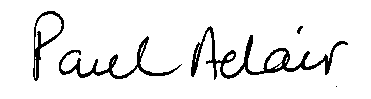 Paul Adair